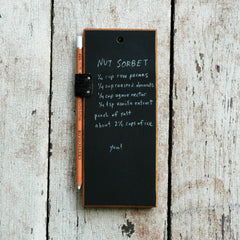 NUT SORBET
1/4 cup raw pecans
1/4 cup roasted almonds
1/4 cup agave nectar
1/4 tsp vanilla extract
pinch of salt
about 2 1/2 cups of ice
yum!